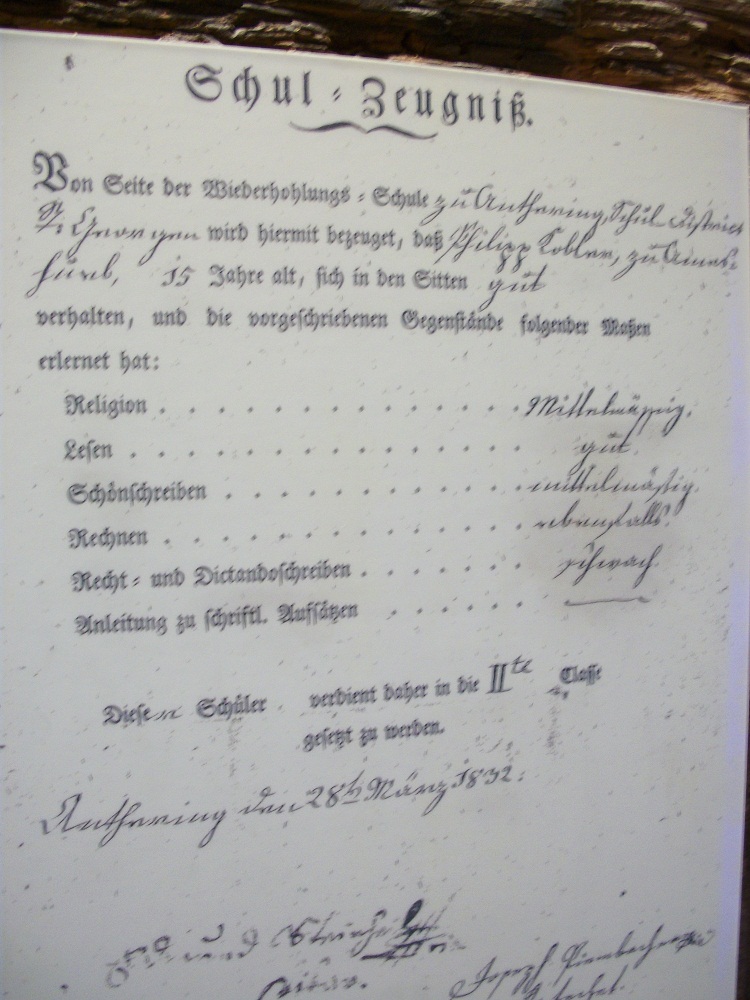 Schul-Zeugniß.
Von Seite der Wiederhohlungs-Schule zu Anthering, Schul District
St. Georgen wird hiermit bezeuget, daß Philipp Kobler, zu
15 Jahre alt, sich in den Sitten gut
verhalten, und die vorgeschriebenen Gegenstände folgender Maßen
erlernet hat:
Religion . . . . . . . . . . . . . Mittelmässig.
Lesen . . . . . . . . . . . . . . gut.
Schönschreiben . . . . . . . . . . mittelmäßig.
Rechnen . . . . . . . . . . . . . ebenfalls.
Recht- und Dictandoschreiben . . . . . . schwach.
Anleitung zu schriftl. Aufsätzen . . . . . —
Dieser Schüler verdient daher in die IIte Classe
gesetzt zu werden.
Anthering den 28t März 1832.
Joseph